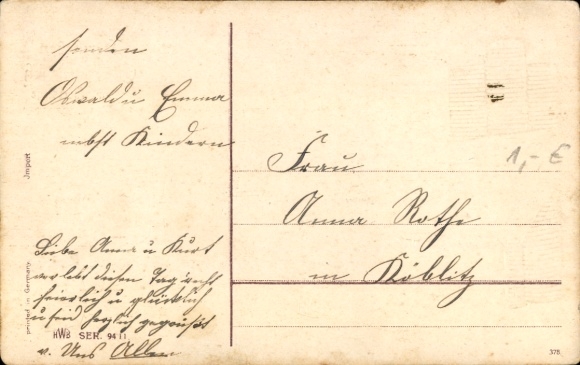 senden
Oswald u Emma
nebst Kindern
Liebe Anna u Kurt
verlebt diesen Tag recht
feierlich u glücklich
u seid herzlich gegrüßt
v. Uns Allen
Import
printed in Germany
HWB SER. 9411
Frau
Anna Rothe
in Köblitz
1,- €
375